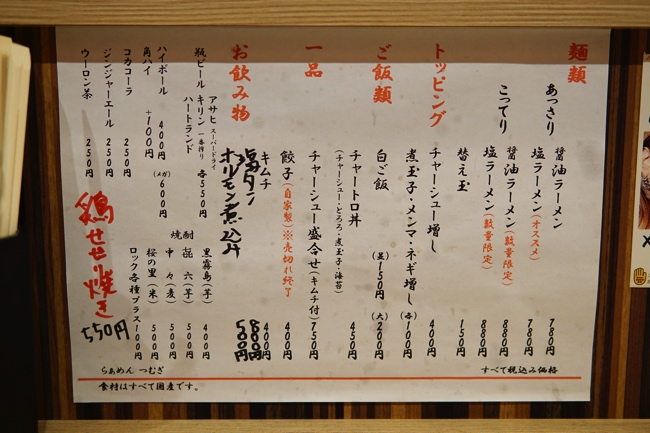 麺類
あっさり
醤油ラーメン 780円
塩ラーメン(オススメ) 780円
こってり
醤油ラーメン(数量限定) 880円
塩ラーメン(数量限定) 880円
替え玉 150円
トッピング
チャーシュー増し 400円
煮玉子・メンマ・ネギ増し(各)100円
ご飯類
白ご飯 (並)150円 (大)200円
チャートロ丼 450円
(チャーシュー・とろろ・煮玉子・海苔)
一品
チャーシュー盛合せ(キムチ付)750円
餃子(自家製)※売切れ終了 400円
キムチ 400円
塩タン 800円
ホルモン煮込み 500円
お飲み物
瓶ビール
アサヒ スーパードライ
キリン 一番搾り 各550円
ハートランド
ハイボール 400円 (メガ)600円
角ハイ +100円
コカコーラ 250円
ジンジャーエール 250円
ウーロン茶 250円
焼酎
黒霧島(芋) 400円
㐂六(芋) 500円
中々(麦) 500円
桜の里(米) 500円
ロック各種プラス100円
鶏せせり焼き 550円
すべて税込み価格
らぁめん つむぎ
食材はすべて国産です。